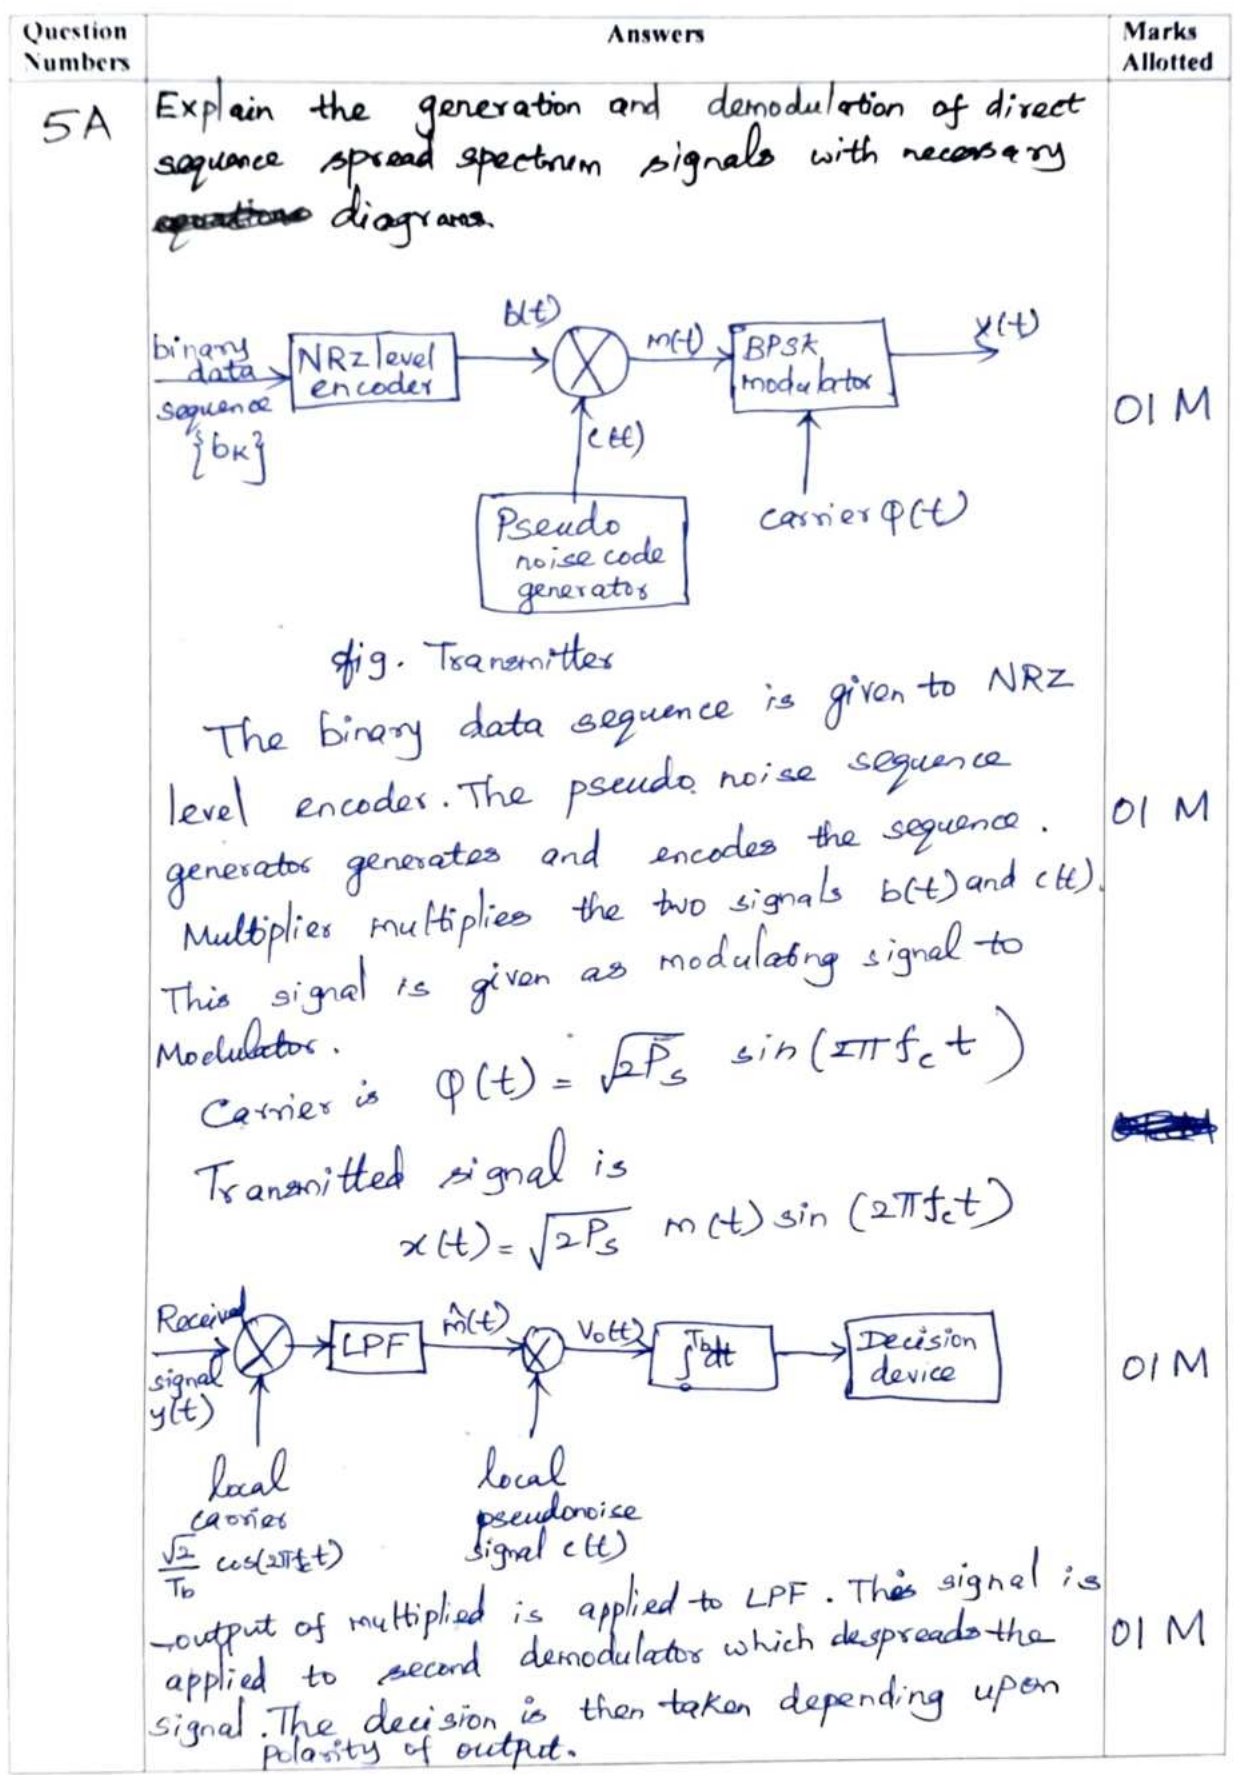 Question Numbers Answers Marks Allotted
5A Explain the generation and demodulation of direct
sequence spread spectrum signals with necessary
diagrams.
b(t) m(t) x(t)
binary data sequence {bK}
NRZ level encoder
BPSK modulator
01 M
c(t)
Pseudo noise code generator
carrier φ(t)
fig. Transmitter
The binary data sequence is given to NRZ
level encoder. The pseudo noise sequence
01 M
generator generates and encodes the sequence.
Multiplier multiplies the two signals b(t) and c(t).
This signal is given as modulating signal to
Modulator.
Carrier is φ(t) = √2Ps sin(2πfct)
Transmitted signal is
x(t) = √2Ps m(t) sin (2πfct)
Received signal y(t)
LPF
m̂(t)
Vo(t)
∫₀ᵀᵇdt
Decision device
01 M
local carrier √2/Tb cos(2πfct)
local pseudonoise signal c(t)
output of multiplied is applied to LPF. This signal is
applied to second demodulator which despreads the
01 M
signal. The decision is then taken depending upon
polarity of output.